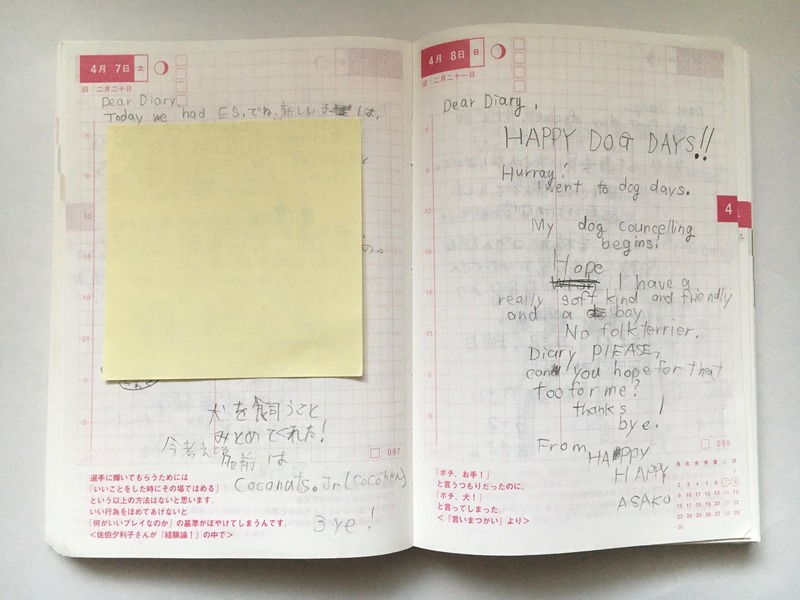 4月 7日 土
旧:二月二十日
Dear Diary,
Today we had ES,でね、新しい
犬を飼うこと
みとめてくれた!
今考えてる
名前は
Coconuts. Jr (cocoちゃん)
Bye!
097
選手に輝いてもらうためには
「いいことをした時にその場でほめる」
という以上の方法はないと思います。
いい行為をほめてあげないと
「何がいいプレイなのか」の基準がぼやけてしまうんです。
<佐伯夕利子さんが『経験論!』の中で>
4月 8日 日
旧:二月二十一日
Dear Diary,
HAPPY DOG DAYS!!
Hurray!
I went to dog days.
My dog councelling
begins.
Hope
I have a
really soft kind and friendly
and a boy
No folkterrier.
Diary PLEASE,
can you hope for that
too for me?
thanks !
bye!
From HAPPY
HAPPY
ASAKO
4
098
「ポチ、お手!」
と言うつもりだったのに、
「ポチ、犬!」
と言ってしまった。
<『言いまつがい』より>
月 火 水 木 金 土 日
1
2 3 4 5 6 7 8
9 10 11 12 13 14 15
16 17 18 19 20 21 22
23 24 25 26 27 28 29
30